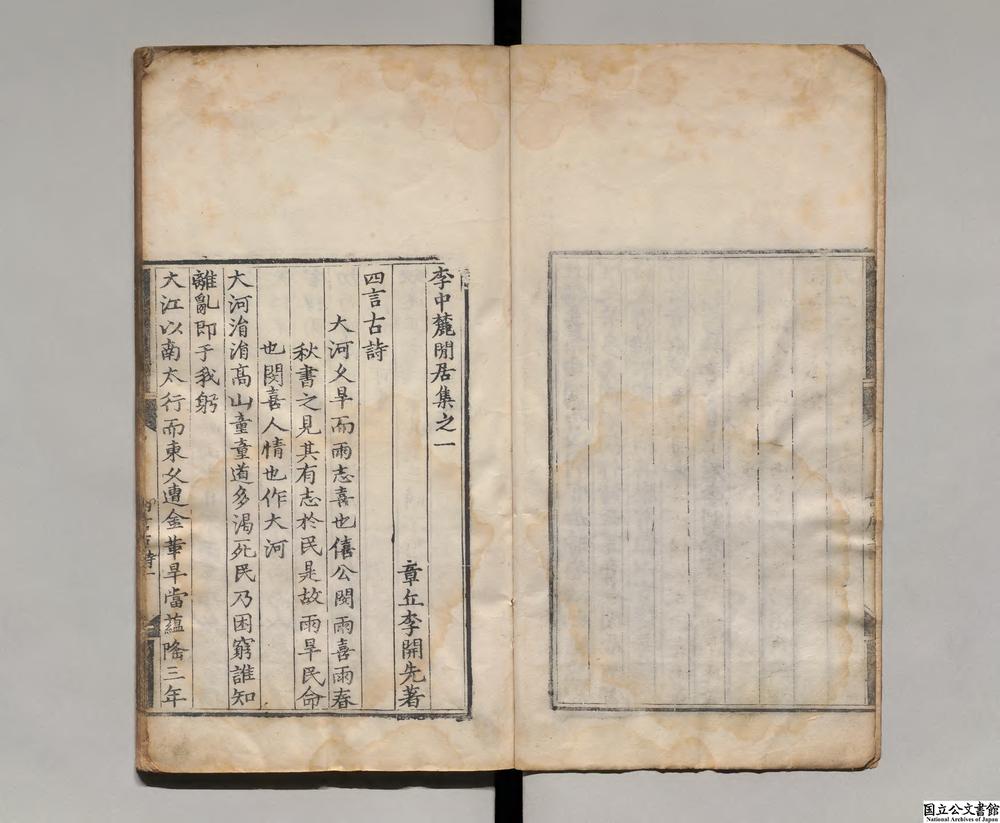 李中麓閒居集之一
章丘李開先著
四言古詩
大河久旱而雨志喜也僖公閔雨喜雨春
秋書之見其有志於民是故雨旱民命
也閔喜人情也作大河
大河滑滑高山童童道多渴死民乃困窮誰知
離亂即于我躬
大江以南太行而東父遭金革旱當蘊隆三年
国立公文書館
National Archives of Japan